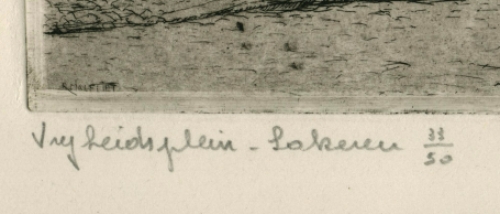 Vryheidsplein - Lokeren 33/50